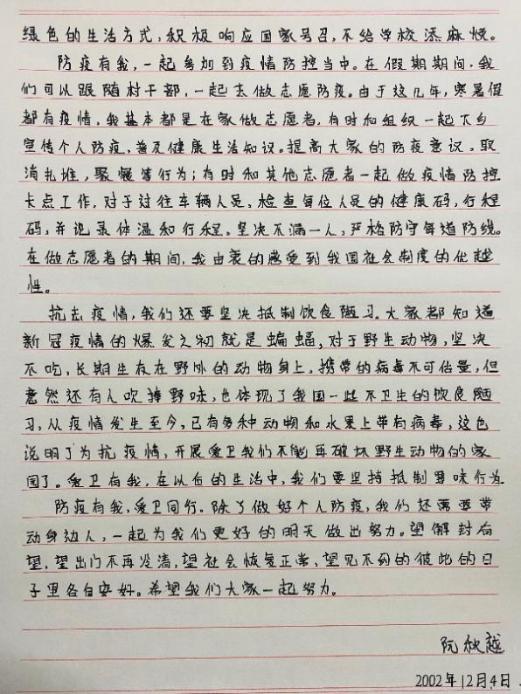 绿色的生活方式，积极响应国家号召，不给学校添麻烦。
防疫有我，一起参加到疫情防控当中。在假期期间，我
们可以跟随村干部，一起去做志愿防疫。由于这几年，寒暑假
都有疫情，我基本都是在家做志愿者，有时和组织一起下乡
宣传个人防疫，普及健康生活知识。提高大家的防疫意识。取
消扎堆，聚餐等行为；有时和其他志愿者一起做疫情防控
卡点工作，对于过往车辆人员，检查每位人员的健康码，行程
码，并记录体温和行程。坚决不漏一人，严格防守每道防线。
在做志愿者的期间，我由衷的感受到我国社会制度的优越
性。
抗击疫情，我们还要坚决抵制饮食陋习。大家都知道
新冠疫情的爆发之物就是蝙蝠，对于野生动物，坚决
不吃，长期生存在野外的动物身上，携带的病毒不可估量，但
竟然还有人吹捧野味，也体现了我国一些不卫生的饮食陋
习，从疫情发生至今，已有多种动物和水果上带有病毒，这也
说明了为抗疫情，开展爱卫我们不能再破坏野生动物的家
园了。爱卫有我，在以后的生活中，我们要坚持抵制野味行为。
防疫有我，爱卫同行。除了做好个人防疫，我们还需要带
动身边人，一起为我们更好的明天做出努力。望解封有
望，望出门不再冷清，望社会恢复正常，望见不到的彼此的日
子里各自安好。希望我们大家一起努力。
阮秋越
2002年12月4日.